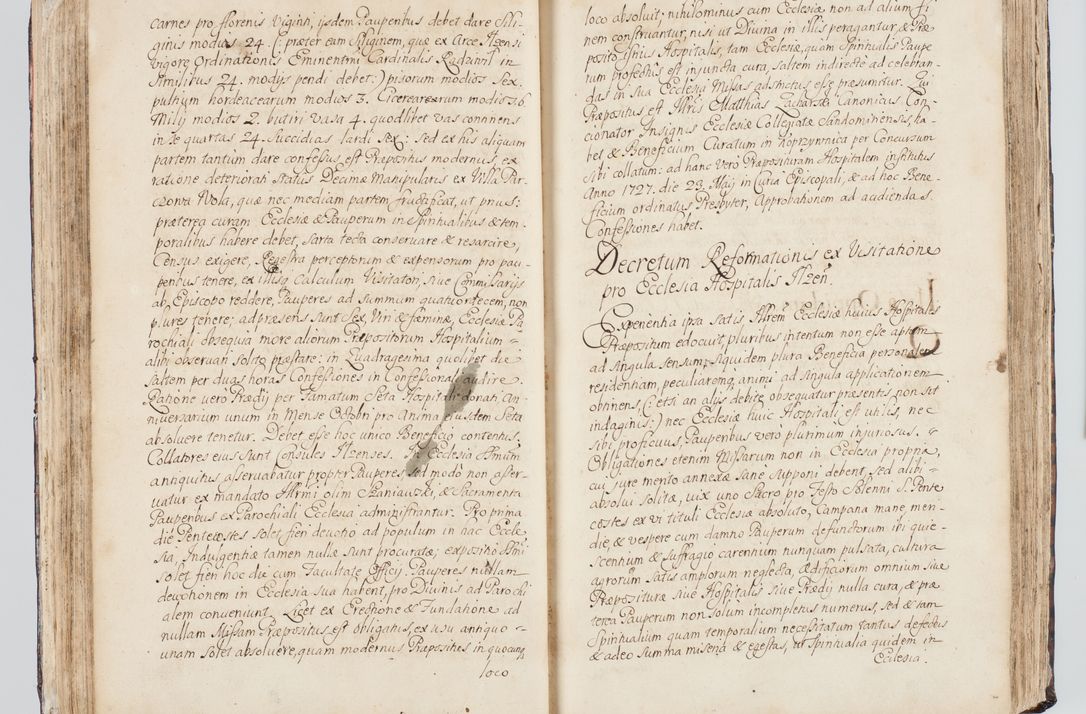 carnes pro florenis Viginti, ijsdem Pauperibus debet dare Sili-
ginis modios 24. (: præter eam Siliginem, quæ ex Arce Ilzensi
vigore Ordinationis Eminentmi Cardinalis Radzivil in
similibus 24. modijs pendi debet:) pisorum modios Sex,
pultium hordeacearum modios 3. Cicerearum modios 6.
Milij modios 2. butiri vasa 4. quodlibet vas continens
in se quartas 24. Succidias lardi Sex: Sed ex his aliquam
partem tantum dare confessus est Præpositus modernus, ex
ratione deteriorati Status Decimæ Manipularis ex Villa Par-
czowa Wola, quæ nec mediam partem fructificat, ut prius:
præterea curam Ecclesiæ & Pauperum in Spiritualibus & tem-
poralibus habere debet, Sarta tecta conservare & resarcire,
Census exigere, Regestra perceptorum & expensorum pro pau-
peribus tenere, ex illisq Calculum Visitatori, Sive Commissarijs
ab Episcopo reddere, Pauperes ad Summum quatuordecem, non
plures tenere; ad præsens Sunt Sex Viri & fæminæ, Ecclesiæ Pa-
rochiali obsequia more aliorum Præpositorum Hospitalium
alibi observari Solito præstare: in Quadragesima quolibet die
Saltem per duas horas Confessiones in Confessionali audire.
Ratione vero Prædij per Famatum Seta Hospitali donati An-
niversarium unum in Mense Octobri pro Anima ejusdem Seta
absolvere tenetur. Debet esse hoc unico Beneficio contentus.
Collatores eius Sunt Consules Ilzenses. In Ecclesia Ssmum
antiquitus asservabatur propter Pauperes, sed modo non asser-
vatur ex mandato Illrmi olim Szaniawski, & Sacramenta
Pauperibus ex Parochiali Ecclesia administrantur. Pro prima
die Pentecostes Solet fieri devotio ad populum in hac Eccle-
sia, Indulgentiæ tamen nullæ Sunt procuratæ; expositio Ssmi
solet fieri hoc die cum Facultate Officij. Pauperes nullam
devotionem in Ecclesia Sua habent, pro Divinis ad Parochi-
alem conveniunt. Licet ex Erectione & Fundatione ad
nullam Missam Præpositus est obligatus, ex usu antiquo
unam Solet absolvere, quam modernus Præpositus in quocunq
loco
loco absolvit; nihilominus cum Ecclesiæ non ad alium fi-
nem construantur, nisi ut Divina in illis peragantur, & Præ-
posito istius Hospitalis, tam Ecclesiæ, quam Spiritualis Paupe-
rum profectus est injuncta cura, Saltem indirecte ad celebran-
das in Sua Ecclesia Missas adstrictus esse præsumitur. Qui
Præpositus est Illris Matthias Zacharski Canonicus Con-
cionator Insignis Ecclesiæ Collegiatæ Sandomiriensis, ha-
bet & Beneficium Curatum in Koprzywnica per Concursum
Sibi collatum: ad hanc vero Præposituram Hospitalem institutus
Anno 1727. die 23. Maij in Curia Episcopali, & ad hoc Bene-
ficium ordinatus Presbyter, Approbationem ad audiendas
Confessiones habet.
Decretum Reformationis ex Visitatione
pro Ecclesia Hospitalis Ilzen.
Experientia ipsa Satis, Illrem Ecclesiæ huius Hospitalis
Præpositum edocuit, pluribus intentum non esse aptum
ad Singula Sensum, Siquidem plura Beneficia personalem
residentiam, peculiaremq, animi ad Singula applicationem
obtinens, (: etsi an alijs debite obsequatur præsentis non Sit
indaginis:) nec Ecclesiæ huic Hospitali est utilis, nec
Sibi proficuus, Pauperibus vero plurimum injuriosus.
Obligationes etenim Missarum non in Ecclesia propria,
cui jure merito annexæ Sane Supponi debent, Sed alibi
absolvi Solita, vix uno Sacro pro Festo Solenni S. Pente
costes ex vi tituli Ecclesiæ absoluto, Campana mane, meri-
die, & vespere cum damno Pauperum defunctorum ibi quie-
scentium & Suffragio carentium nunquam pulsata, cultura
agrorum Satis amplorum neglecta, ædificiorum omnium Sive
Præposituræ Sive Hospitalis Sive Prædij nulla cura, & præ
terea Pauperum non Solum incompletus numerus, Sed & tam
Spiritualium quam temporalium necessitatum tantus defectus
& adeo Summa miseria & egestas, ut Spiritualia quidem in
Ecclesia.